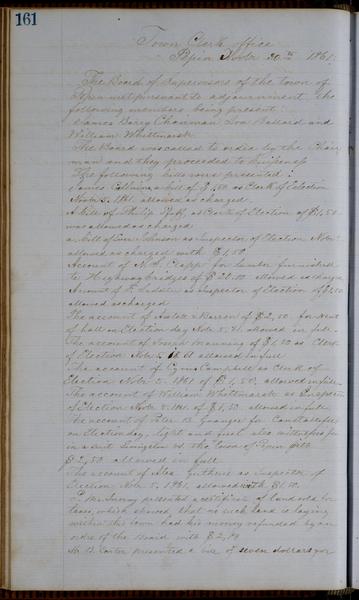 161
Town Clerk office
Pepin Novbr 20th 1861.
The Board of Supervisors of the town of
Pepin met pursuant to adjournment the
following members being present:
James Barry Chairman Ira Ballard and
William Whittmarsh
The Board was called to order by the Chair
man and they proceeded to business
The following bills were presented:
James a bill of $1,50 as Clerk of Election
Novbr 5. 1861. allowed as charged.
A bill of Philip as Clerk of Election of $1,50
was allowed as charged
a bill of Johnson as Inspector of Election Novbr
allowed as charged with $1,50
Account of Clapp for lumber furnished
to Highway bridges of $20.00 allowed as charged
Account of as Inspector of Election of $1,50
allowed as charged
The account of & Barron of $2,50 for rent
of hall on Election day Nov. 5. 61 allowed in full
The account of Joseph Manning of $1,50 as Clerk
of Election Nov. 5. 1861 allowed in full
The account of Cyrus Campbell as Clerk of
Election Novbr 5. 1861 of $1,50, allowed in full
The account of William Whittmarsh as Inspector
of Election Novbr 5. 1861 of $1,50 allowed in full
The account of Peter B. for Constable fees
on Election day, light and fuel also
in a suit vs the Town of Pepin with
$2,50 allowed in full
The account of Guthrie as Inspector of
Election Nov. 5, 1861, allowed with $1,50.
presented a certificate of land sold for
taxes, which showed, that no such land is laying
within this town had his money refunded by an
order of the Board with $2,19
M. B. Carter presented a bill of seven dollars for